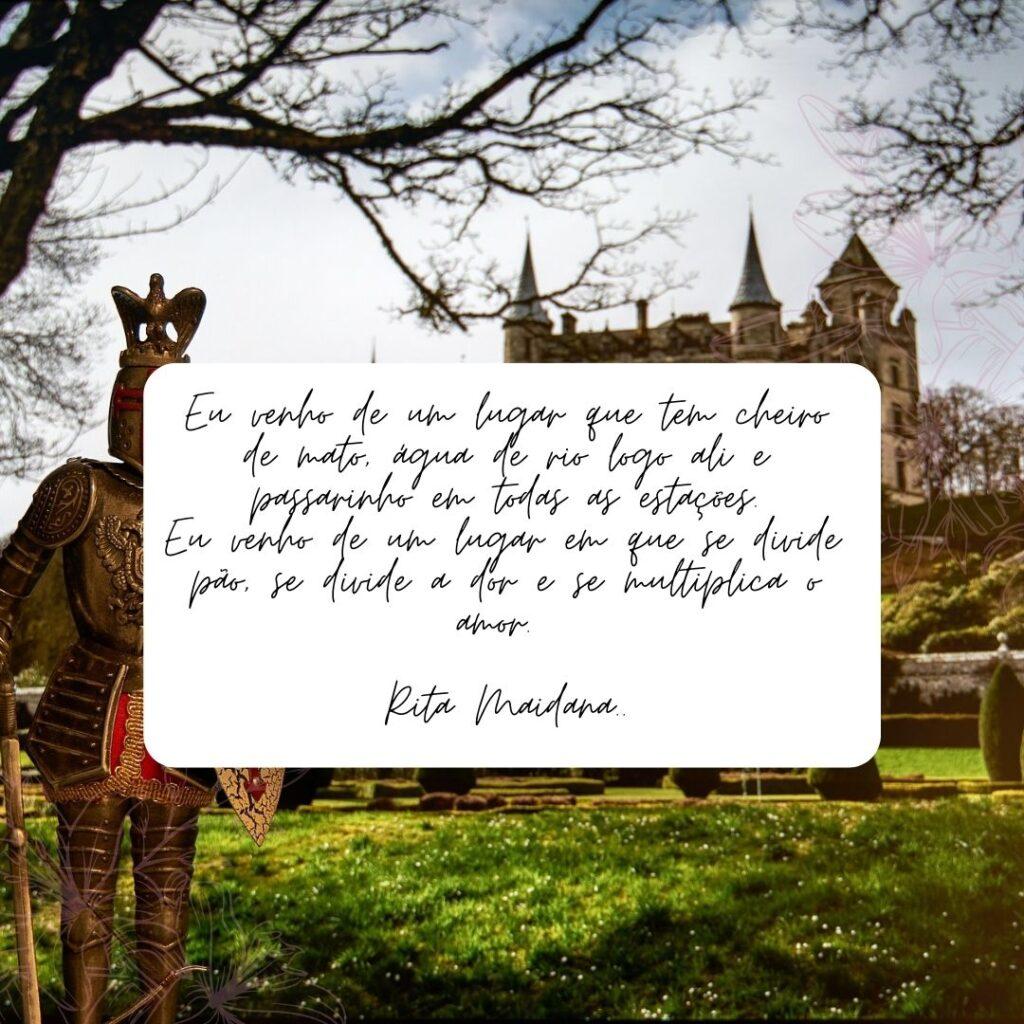 Eu venho de um lugar que tem cheiro
de mato, água de rio logo ali e
passarinho em todas as estações.
Eu venho de um lugar em que se divide
pão, se divide a dor e se multiplica o
amor.
Rita Maidana..